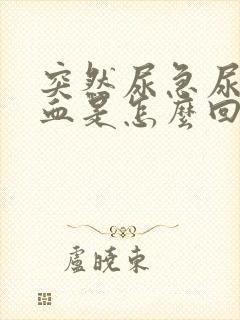 突然尿急尿
血是怎麼回
盧曉東